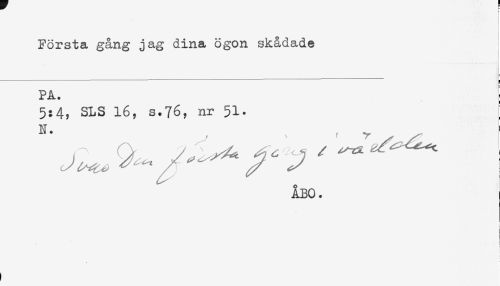 Första gång jag dina ögon skådade
PA.
5:4, SLS 16, s.76, nr 51.
N.
Den första gång i världen
ÅBO.